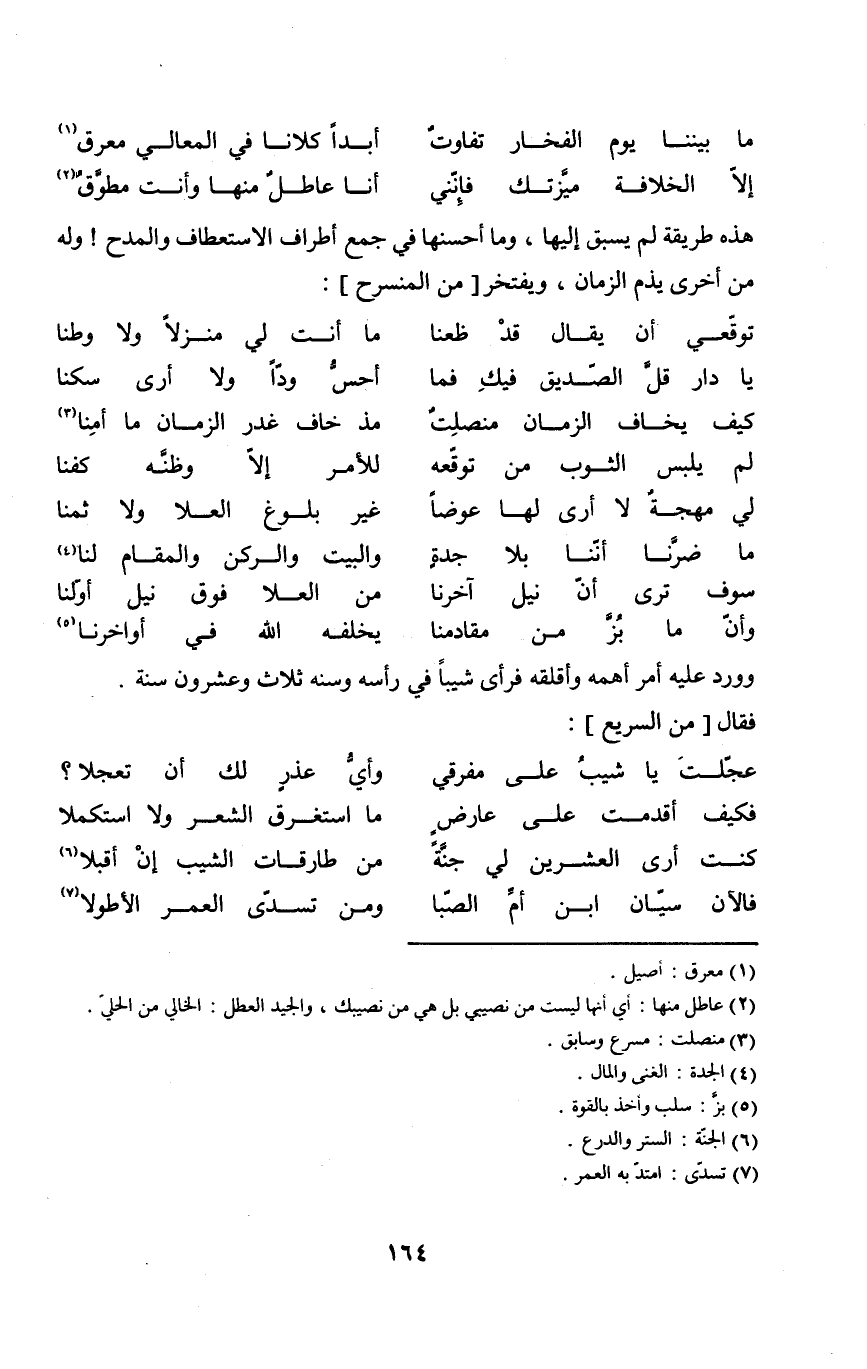 ما بيننا يوم الفخار تفاوتٌ أبداً كلانا في المعالي معرق(١)
إلاّ الخلافة ميَّزتك فإنّني أنا عاطلٌ منها وأنت مطوَّقُ(٢)
هذه طريقة لم يسبق إليها ، وما أحسنها في جمع أطراف الاستعطاف والمدح ! وله
من أخرى يذم الزمان ، ويفتخر [ من المنسرح ] :
توقّعي أن يقال قدْ ظعنا ما أنت لي منزلاً ولا وطنا
يا دار قلَّ الصّديق فيكِ فما أحسُّ ودّاً ولا أرى سكنا
كيف يخاف الزمان منصلِتٌ مذ خاف غدر الزمان ما أمِنا(٣)
لم يلبس الثوب من توقّعه للأمر إلاّ وظنَّه كفنا
لي مهجةٌ لا أرى لها عوضاً غير بلوغ العلا ولا ثمنا
ما ضرَّنا أنّنا بلا جدةٍ والبيت والركن والمقام لنا(٤)
سوف ترى أنّ نيل آخرنا من العلا فوق نيل أوّلنا
وأنّ ما بُزَّ من مقادمنا يخلفه الله في أواخرنا(٥)
وورد عليه أمر أهمه وأقلقه فرأى شيباً في رأسه وسنه ثلاث وعشرون سنة .
فقال [ من السريع ] :
عجّلتَ يا شيبُ على مفرقي وأيُّ عذرٍ لك أن تعجلا ؟
فكيف أقدمت على عارضٍ ما استغرق الشعر ولا استكملا
كنت أرى العشرين لي جنَّةً من طارقات الشيب إنْ أقبلا(٦)
فالآن سيّان ابن أمَّ الصّبا ومن تسدّى العمر الأطولا(٧)
(١) معرق : أصيل .
(٢) عاطل منها : أي أنها ليست من نصيبي بل هي من نصيبك ، والجيد العطل : الخالي من الحليّ .
(٣) منصلت : مسرع وسابق .
(٤) الجدة : الغنى والمال .
(٥) بزَّ : سلب وأخذ بالقوة .
(٦) الجنّة : الستر والدرع .
(٧) تسدّى : امتدّ به العمر .
١٦٤